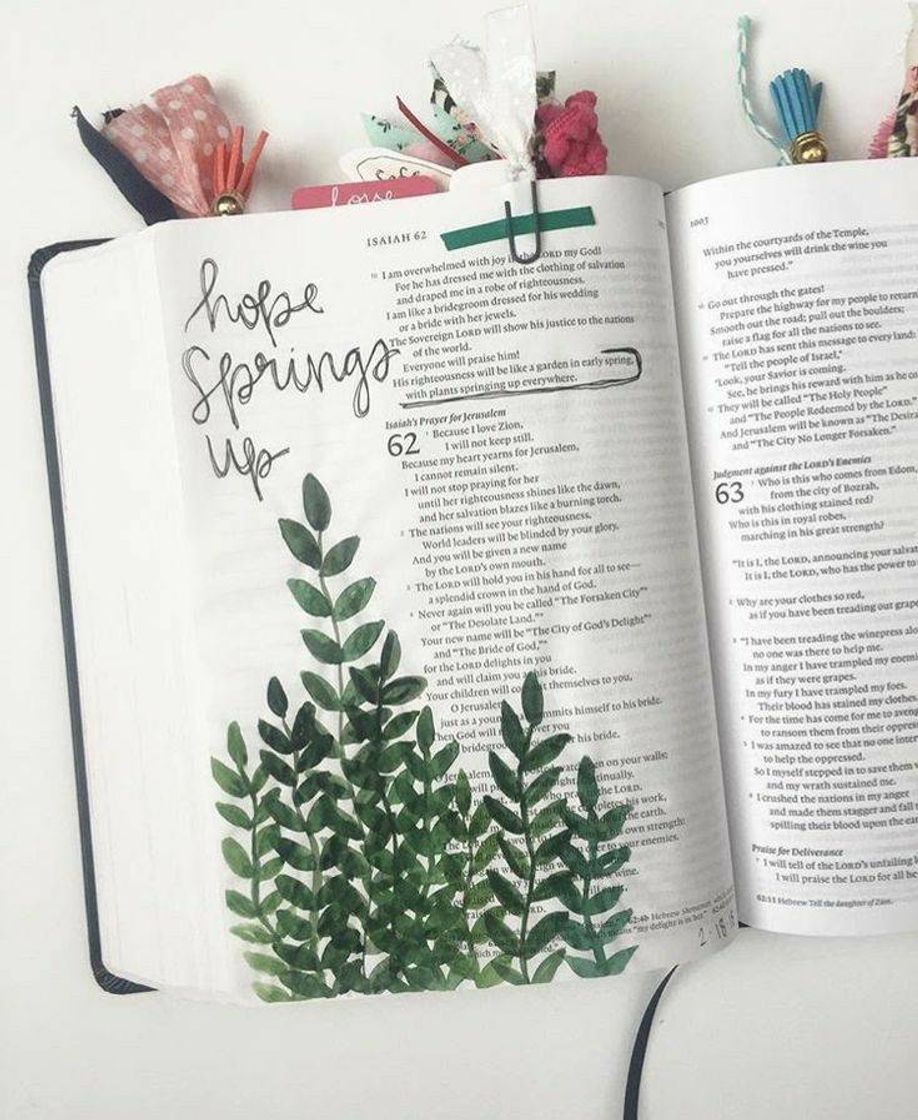 Safe
love
ISAIAH 62
hope
springs
up
10 I am overwhelmed with joy in the LORD my God!
For he has dressed me with the clothing of salvation
and draped me in a robe of righteousness.
I am like a bridegroom dressed for his wedding
or a bride with her jewels.
The Sovereign LORD will show his justice to the nations
of the world.
Everyone will praise him!
His righteousness will be like a garden in early spring,
with plants springing up everywhere.
Isaiah's Prayer for Jerusalem
62 1 Because I love Zion,
I will not keep still.
Because my heart yearns for Jerusalem,
I cannot remain silent.
I will not stop praying for her
until her righteousness shines like the dawn,
and her salvation blazes like a burning torch.
2 The nations will see your righteousness.
World leaders will be blinded by your glory.
And you will be given a new name
by the LORD's own mouth.
3 The LORD will hold you in his hand for all to see—
a splendid crown in the hand of God.
4 Never again will you be called "The Forsaken City"
or "The Desolate Land."
Your new name will be "The City of God's Delight"
and "The Bride of God,"
for the LORD delights in you
and will claim you as his bride.
5 Your children will commit themselves to you,
O Jerusalem,
just as a young man commits himself to his bride.
Then God will rejoice over you
as a bridegroom his bride.
O Jerusalem, posted watchmen on your walls;
will continually.
who pray LORD.
completes his work,
the earth.
his own strength:
over to your enemies.
wine.
LORD.
62:4b Hebrew
means "my delight is in her."
2·18·15
1003
Within the courtyards of the Temple,
you yourselves will drink the wine you
have pressed."
10 Go out through the gates!
Prepare the highway for my people to return
Smooth out the road; pull out the boulders;
raise a flag for all the nations to see.
11 The LORD has sent this message to every land:
"Tell the people of Israel,
"Look, your Savior is coming.
See, he brings his reward with him as he co
12 They will be called "The Holy People"
and "The People Redeemed by the LORD."
And Jerusalem will be known as "The Desir
and "The City No Longer Forsaken."
Judgment against the LORD's Enemies
63 1 Who is this who comes from Edom,
from the city of Bozrah,
with his clothing stained red?
Who is this in royal robes,
marching in his great strength?
"It is I, the LORD, announcing your salva
It is I, the LORD, who has the power to
2 Why are your clothes so red,
as if you have been treading out grap
3 "I have been treading the winepress alo
no one was there to help me.
In my anger I have trampled my enemi
as if they were grapes.
In my fury I have trampled my foes.
Their blood has stained my clothes
4 For the time has come for me to aveng
to ransom them from their oppres
5 I was amazed to see that no one inter
to help the oppressed.
So I myself stepped in to save them w
and my wrath sustained me.
6 I crushed the nations in my anger
and made them stagger and fall
spilling their blood upon the ear
Praise for Deliverance
7 I will tell of the LORD's unfailing l
I will praise the LORD for all he
62:11 Hebrew Tell the daughter of Zion.